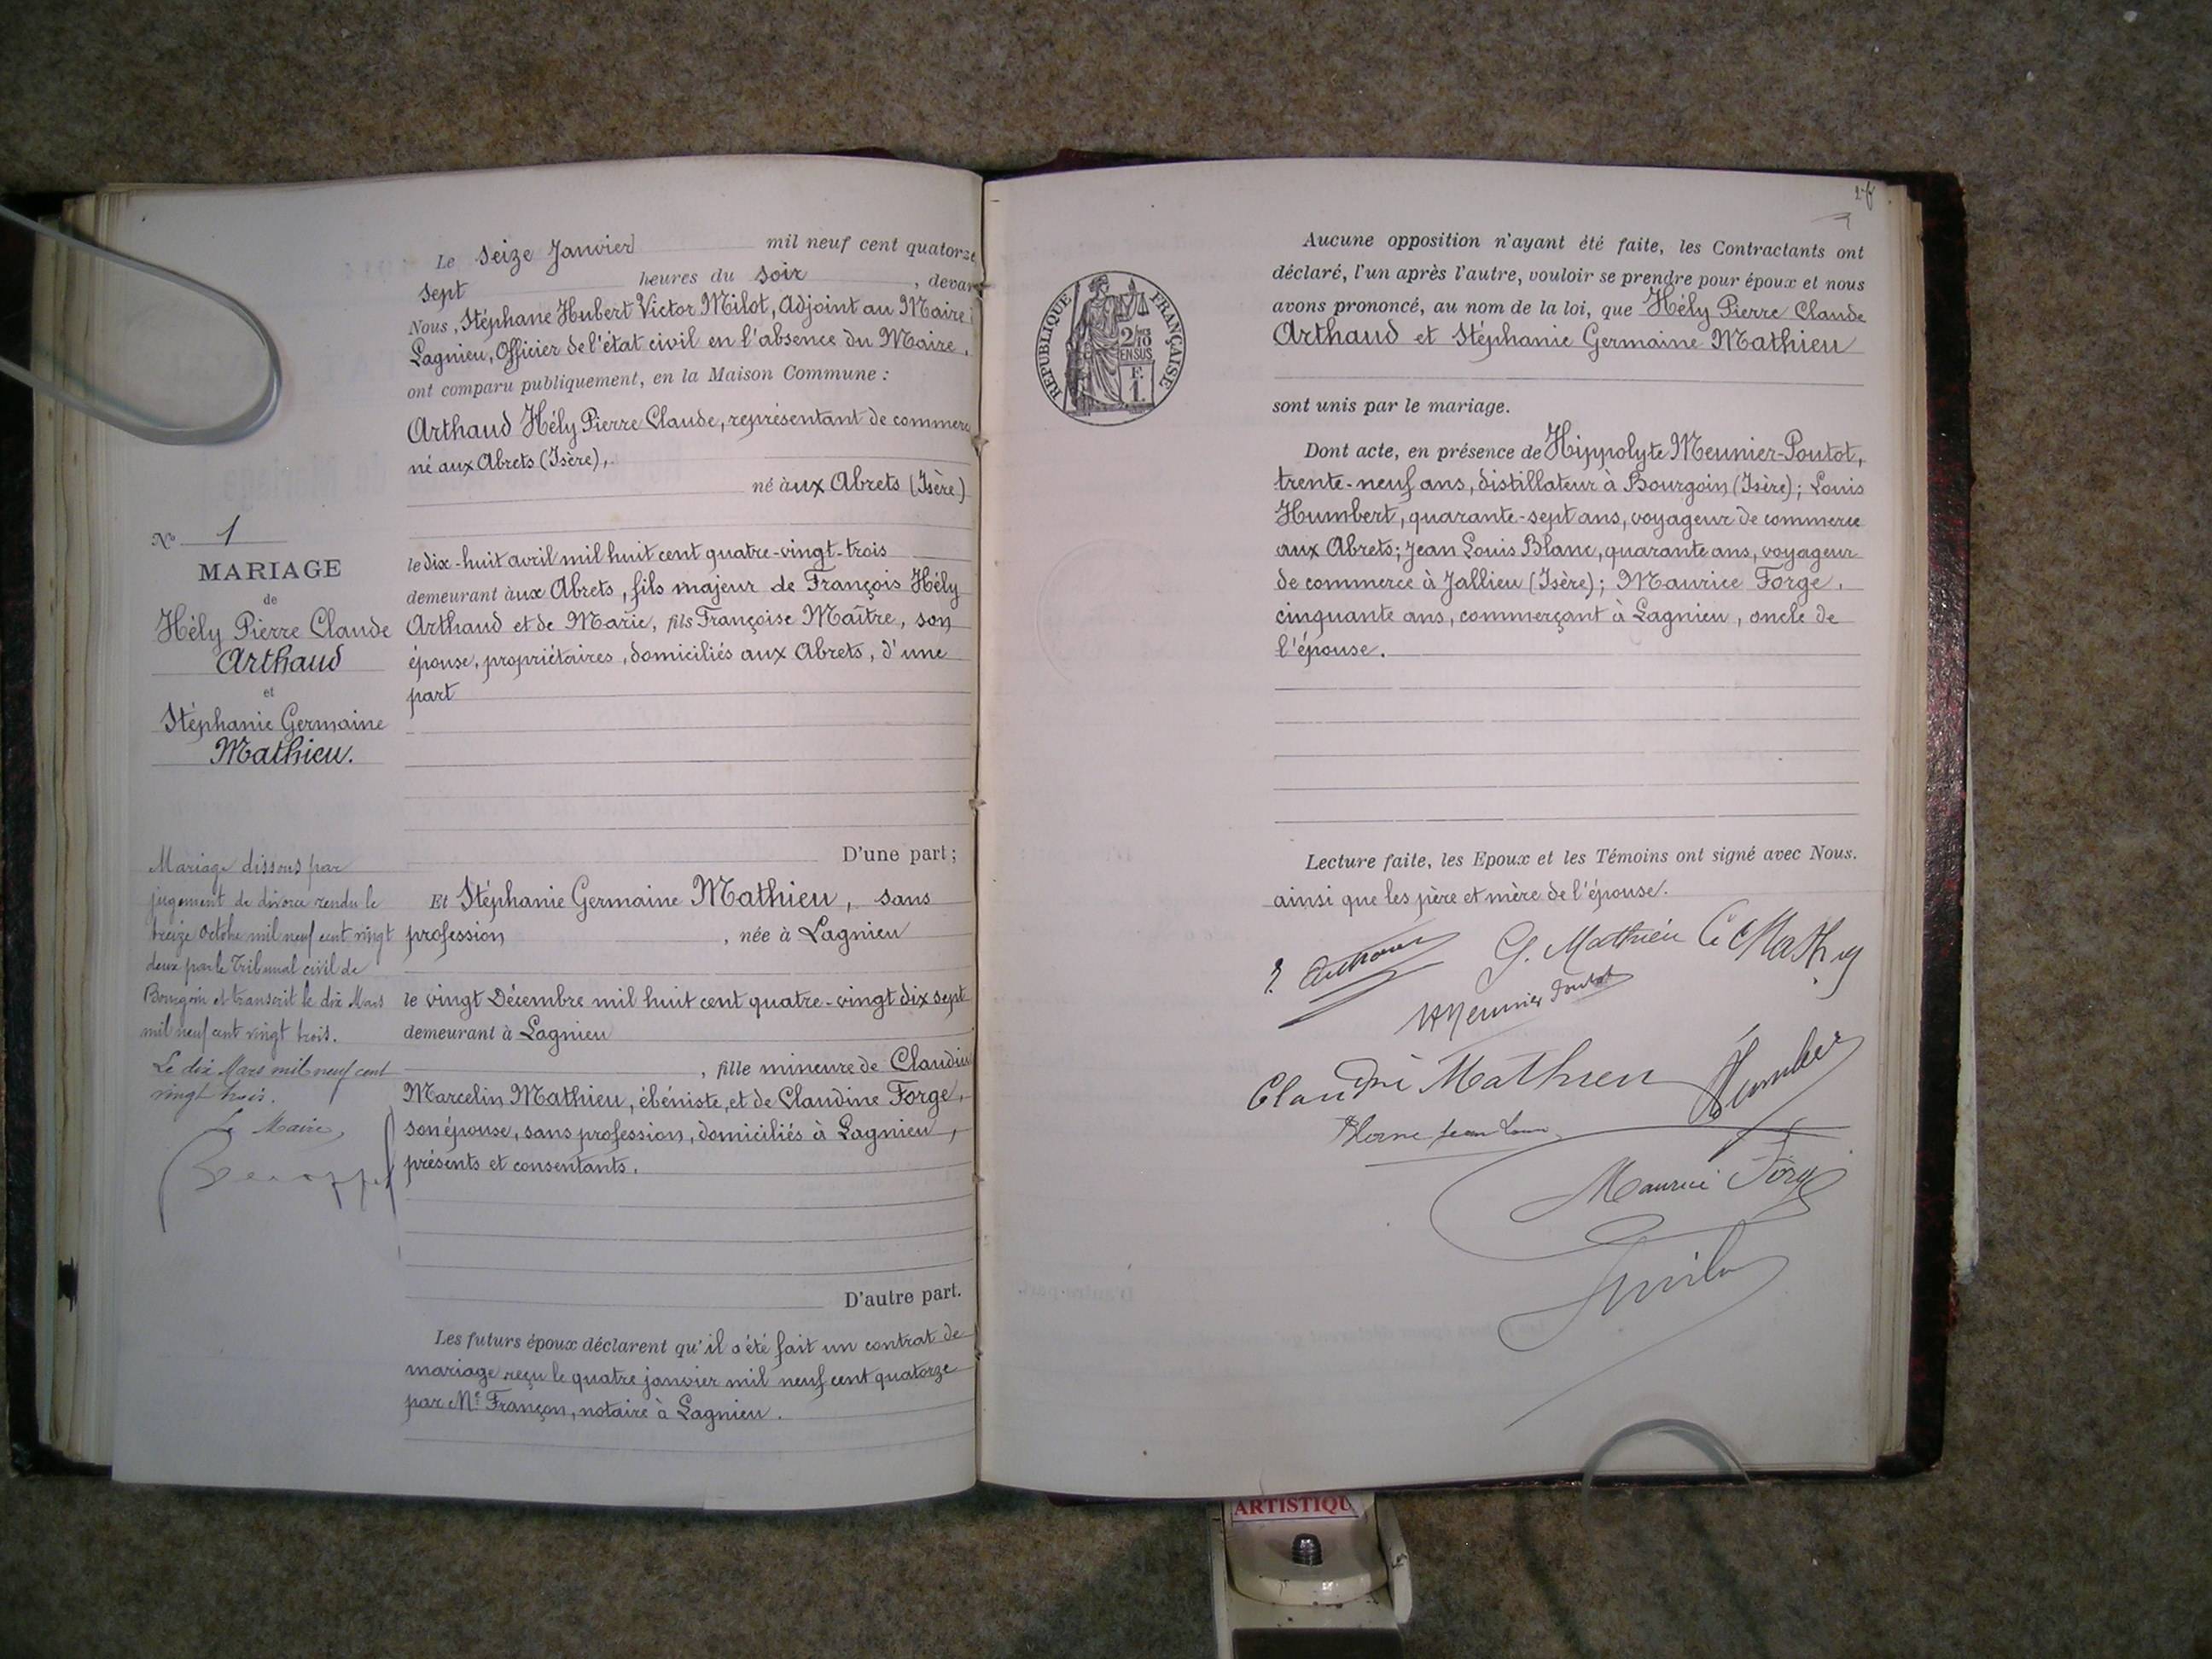 Le Seize Janvier mil neuf cent quatorze
sept heures du soir, devan
Nous, Stéphane Hubert Victor Milot, Adjoint au Maire
Lagnieu, Officier de l'état civil en l'absence du Maire.
ont comparu publiquement, en la Maison Commune :
Arthaud Hély Pierre Claude, représentant de commerce
né aux Abrets (Isère),
né àux Abrets (Isère)
le dix-huit avril mil huit cent quatre-vingt-trois
demeurant àux Abrets, fils majeur de François Hély
Arthaud et de Marie, fils Françoise Maître, son
épouse, propriétaires, domiciliés aux Abrets, d'une
part
D'une part;
Et Stéphanie Germaine Mathieu, sans
profession, née à Lagnieu
le vingt Décembre mil huit cent quatre-vingt dix sept
demeurant à Lagnieu
, fille mineure de Claudius
Marcelin Mathieu, ébéniste, et de Claudine Forge,
son épouse, sans profession, domiciliés à Lagnieu,
présents et consentants.
D'autre part.
Les futurs époux déclarent qu'il a été fait un contrat de
mariage reçu le quatre janvier mil neuf cent quatorze
par Me Françon, notaire à Lagnieu.
No 1
MARIAGE
de
Hély Pierre Claude
Arthaud
et
Stéphanie Germaine
Mathieu.
Mariage dissous par
jugement de divorce rendu le
treize Octobre mil neuf cent vingt
deux par le Tribunal civil de
Bourgoin et transcrit le dix Mars
mil neuf cent vingt trois.
Le dix Mars mil neuf cent
vingt trois.
Le Maire,
RÉPUBLIQUE FRANÇAISE
2/10
EN SUS
F.
1.
Aucune opposition n'ayant été faite, les Contractants ont
déclaré, l'un après l'autre, vouloir se prendre pour époux et nous
avons prononcé, au nom de la loi, que Hély Pierre Claude
Arthaud et Stéphanie Germaine Mathieu
sont unis par le mariage.
Dont acte, en présence de Hippolyte Meunier-Poutot,
trente-neuf ans, distillateur à Bourgoin (Isère); Louis
Humbert, quarante-sept ans, voyageur de commerce
aux Abrets; Jean Louis Blanc, quarante ans, voyageur
de commerce à Jallieu (Isère); Maurice Forge,
cinquante ans, commerçant à Lagnieu, oncle de
l'épouse.
Lecture faite, les Epoux et les Témoins ont signé avec Nous.
ainsi que les père et mère de l'épouse.
Arthaud G. Mathieu
HMeunier Poutot
Claudine Mathieu Humbert
Blanc Jean Louis
Maurice Forge
ARTISTIQU